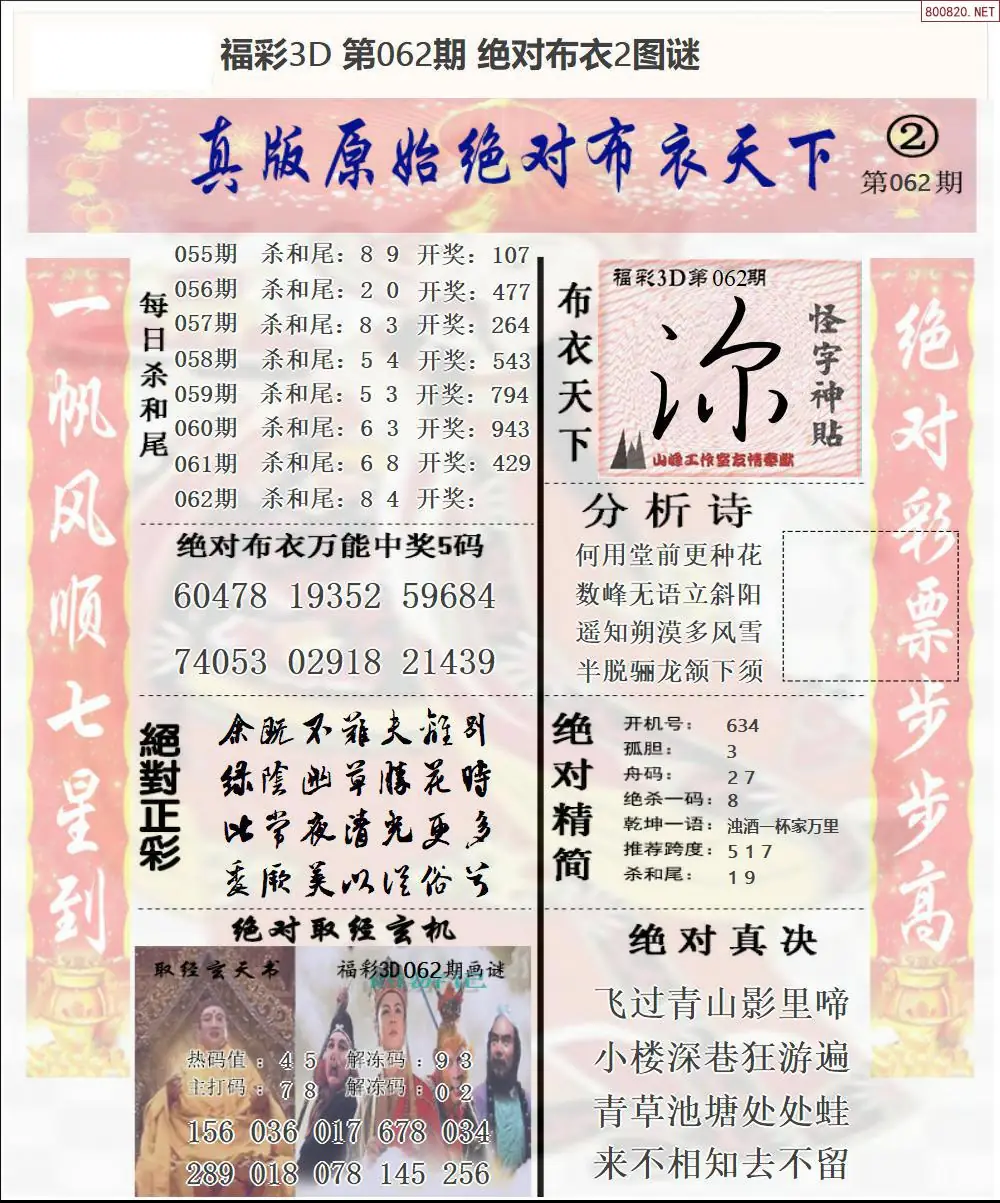 800820.NET
福彩3D 第062期 绝对布衣2图谜
真版原始绝对布衣天下
②
第062期
一帆风顺七星到
每日杀和尾
055期 杀和尾：8 9 开奖：107
056期 杀和尾：2 0 开奖：477
057期 杀和尾：8 3 开奖：264
058期 杀和尾：5 4 开奖：543
059期 杀和尾：5 3 开奖：794
060期 杀和尾：6 3 开奖：943
061期 杀和尾：6 8 开奖：429
062期 杀和尾：8 4 开奖：
绝对布衣万能中奖5码
60478 19352 59684
74053 02918 21439
絕對正彩
余既不難夫離别
绿陰幽草勝花時
此常夜清光更多
委厥美以從俗兮
绝对取经玄机
取经玄天书
福彩3D062期画谜
热码值：4 5 解冻码：9 3
主打码：7 8 解冻码：0 2
156 036 017 678 034
289 018 078 145 256
布衣天下
福彩3D第062期
怪字神貼
山峰工作室友情奉献
分析诗
何用堂前更种花
数峰无语立斜阳
遥知朔漠多风雪
半脱骊龙颔下须
绝对精简
开机号：634
孤胆：3
舟码：2 7
绝杀一码：8
乾坤一语：浊酒一杯家万里
推荐跨度：5 1 7
杀和尾：1 9
绝对真决
飞过青山影里啼
小楼深巷狂游遍
青草池塘处处蛙
来不相知去不留
绝对彩票步步高